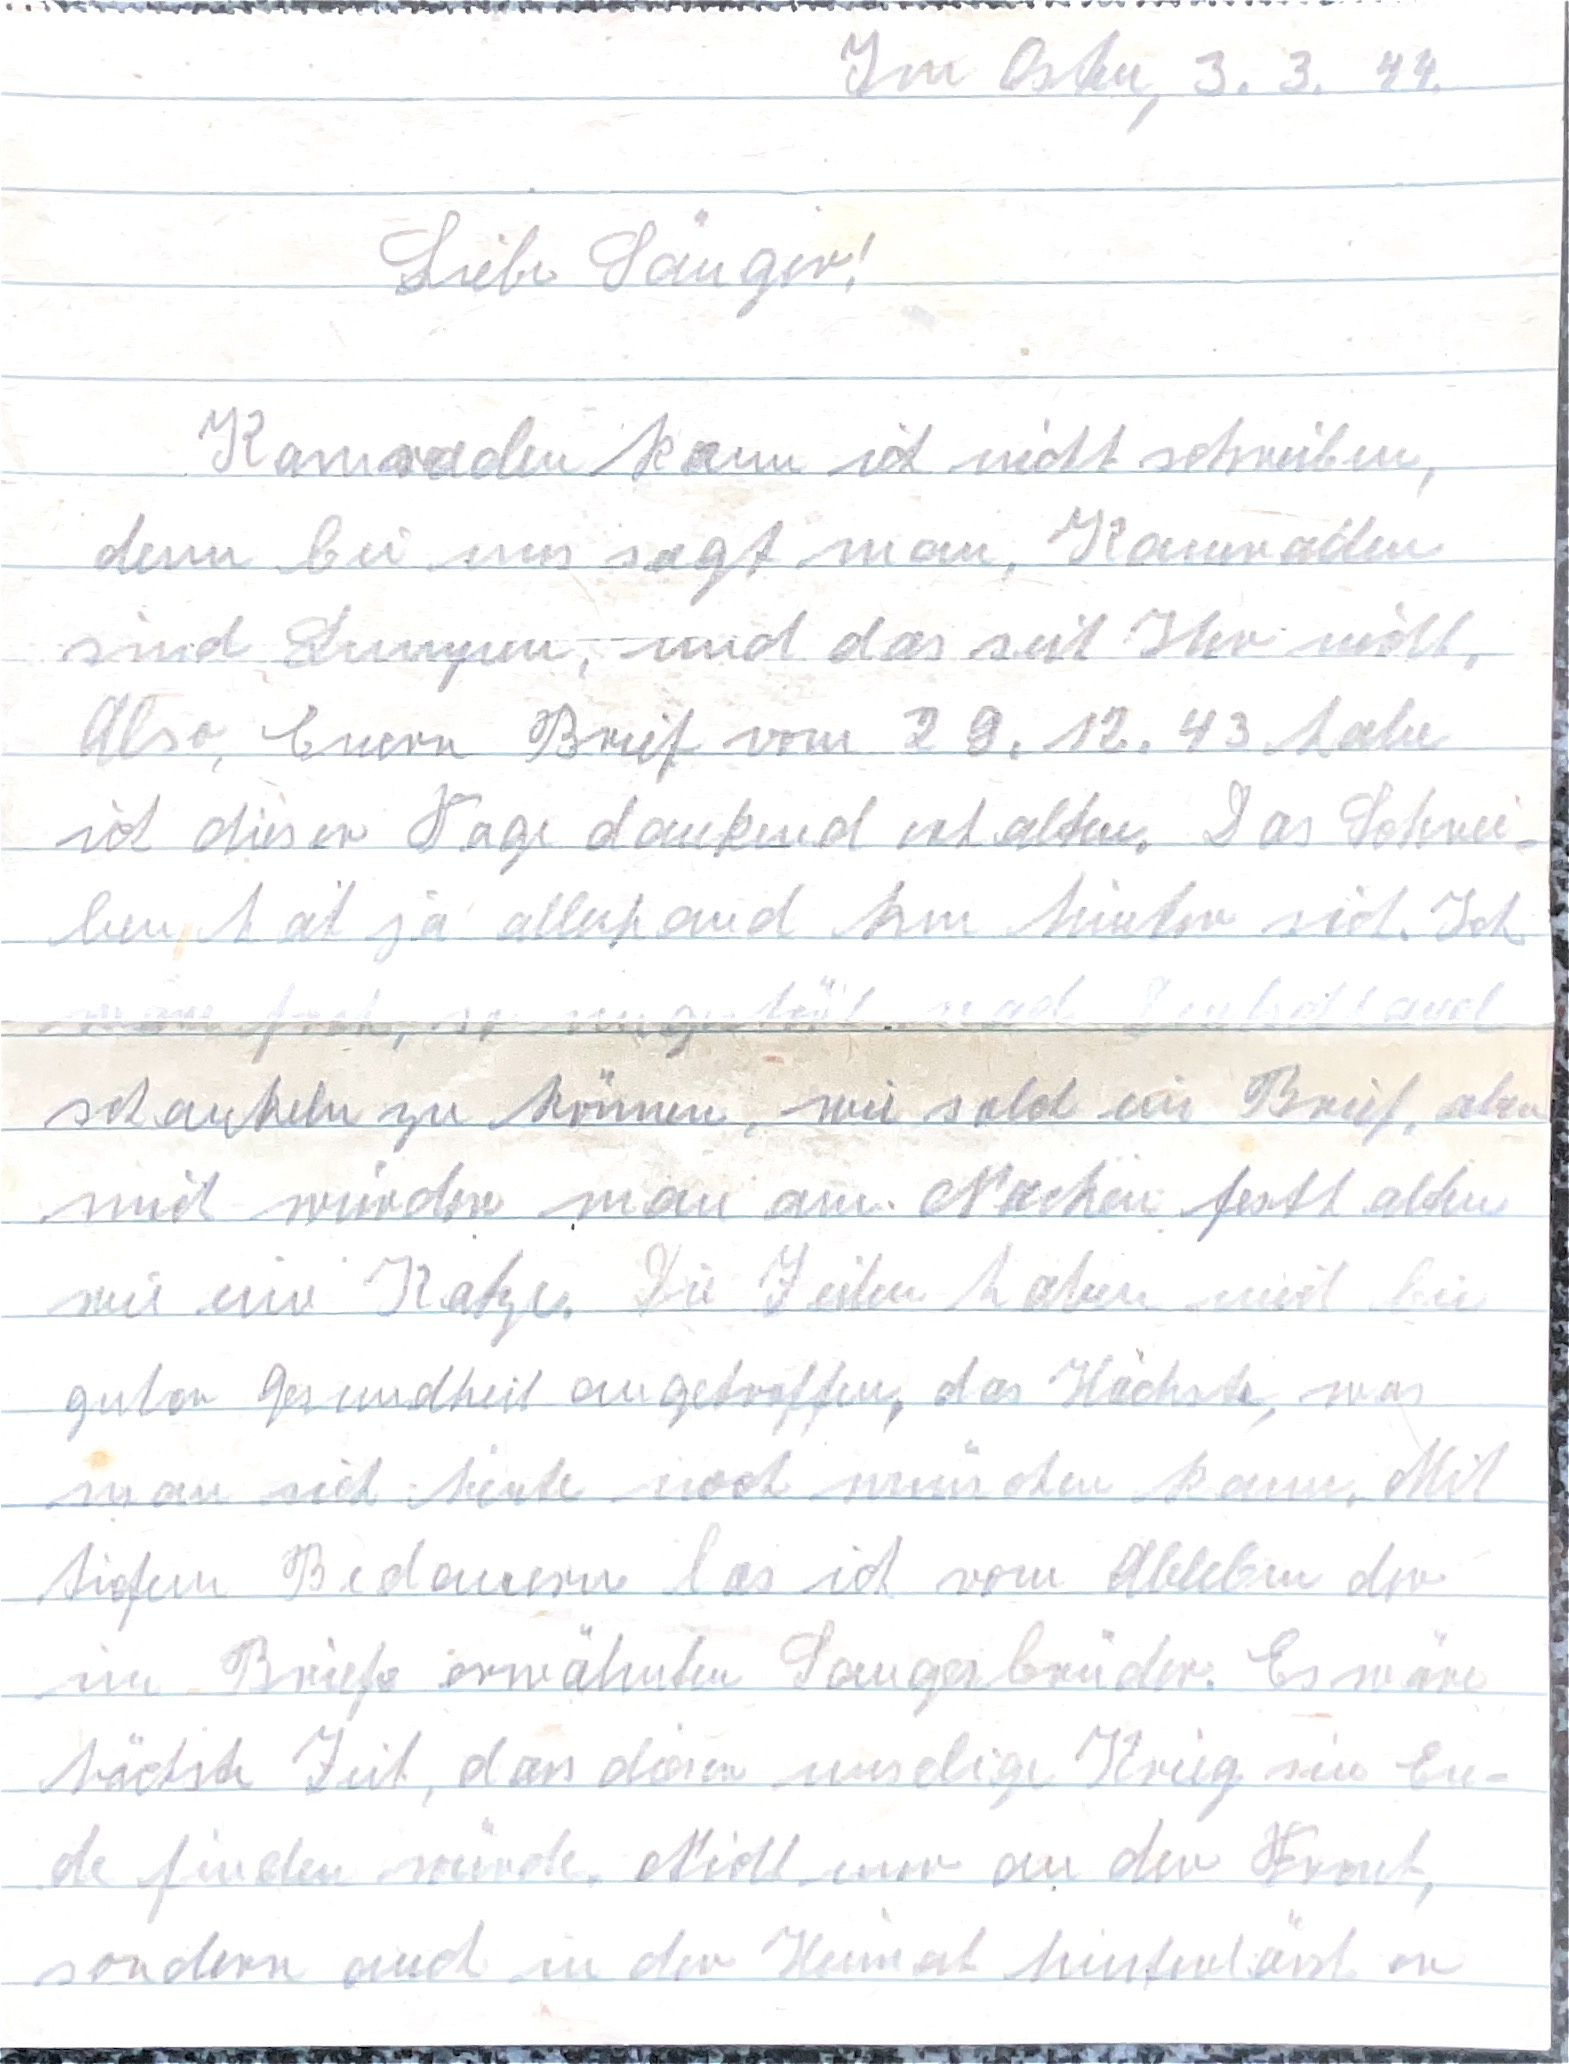 Im Osten, 3. 3. 44.
Liebe Sänger!
Kameraden kann ich nicht schreiben,
denn bei uns sagt man, Kameraden
sind Lumpen, und das seit Ihr nicht.
Also, Euern Brief vom 29. 12. 43 habe
ich dieser Tage dankend erhalten. Das Schrei-
ben hat ja allerhand km hinter sich. Ich
wäre froh, so ungestört nach Deutschland
schaukeln zu können, wie solch ein Brief, aber
mich würden man am Nacken festhalten
wie eine Katze. Die Zeilen haben mich bei
guter Gesundheit angetroffen, das Höchste, was
man sich heute noch wünschen kann. Mit
tiefem Bedauern las ich vom Ableben der
im Briefe erwähnten Sangesbrüder. Es wäre
höchste Zeit, dass dieser unselige Krieg sein En-
de finden würde. Nicht nur an der Front,
sondern auch in der Heimat hinterlässt er